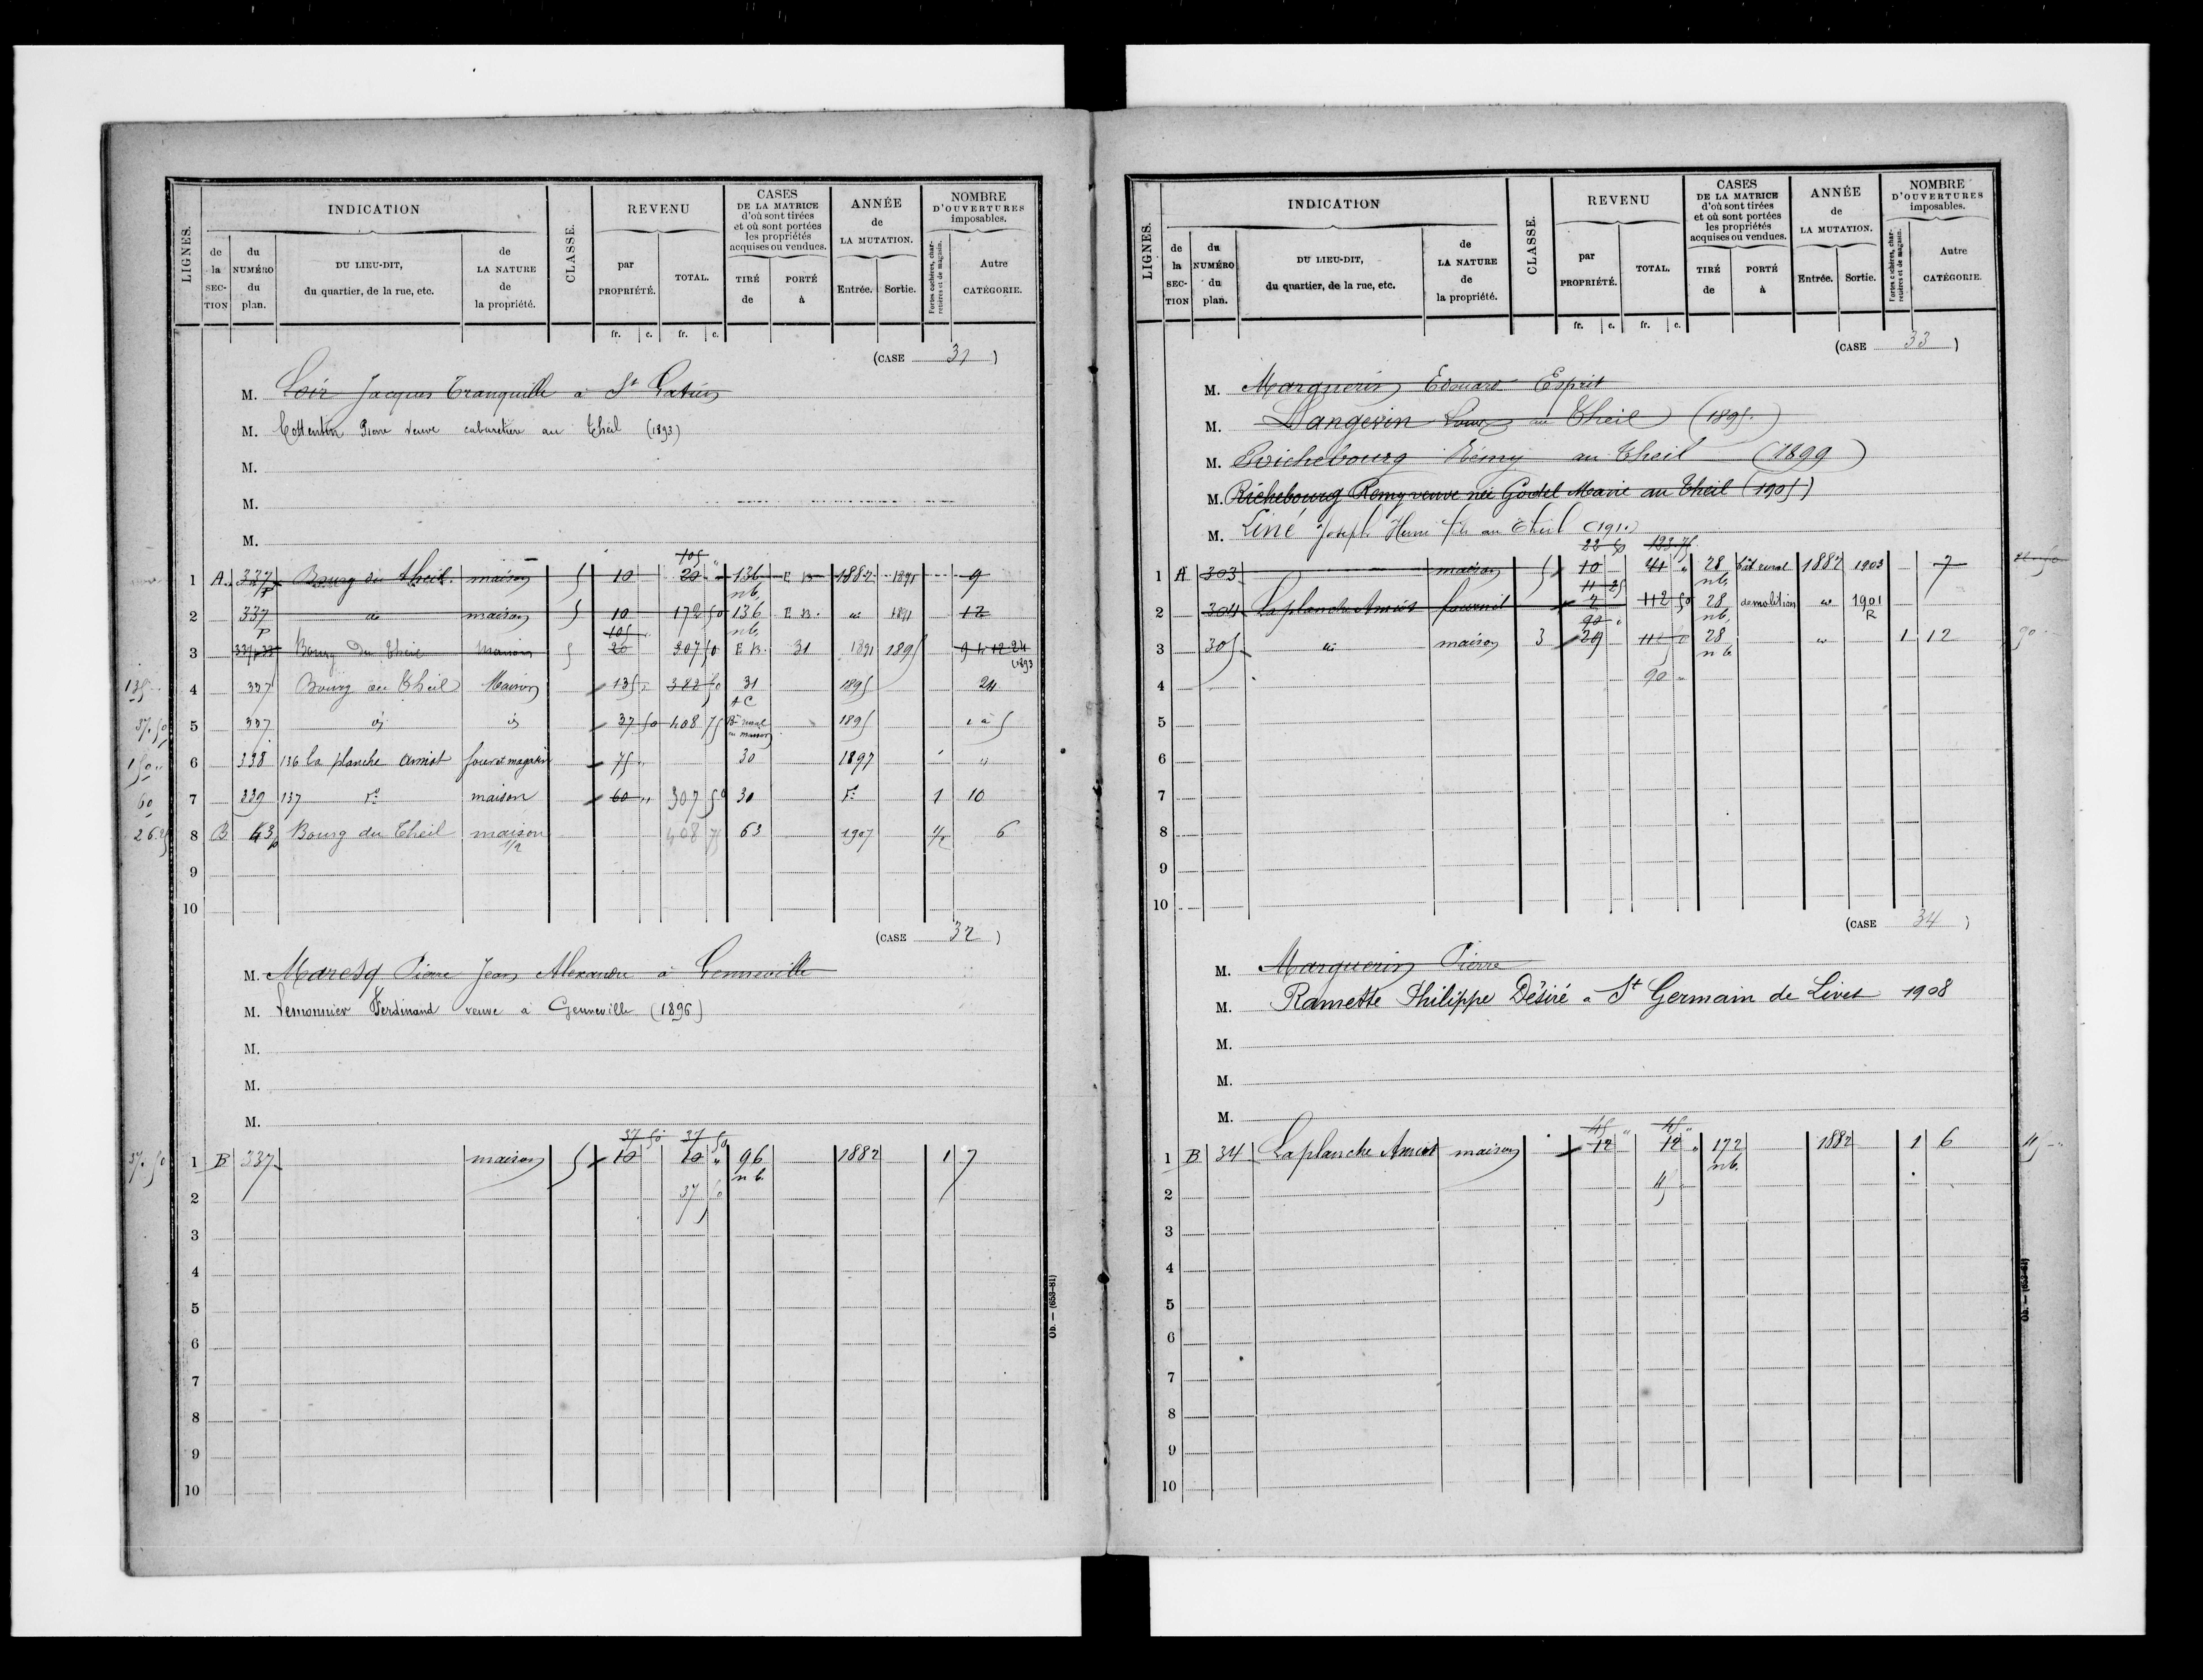 LIGNES.
INDICATION
de la SECTION
du NUMÉRO du plan.
DU LIEU-DIT, du quartier, de la rue, etc.
de LA NATURE de la propriété.
CLASSE.
REVENU
par PROPRIÉTÉ.
TOTAL.
fr. c. fr. c.
CASES DE LA MATRICE d'où sont tirées et où sont portées les propriétés acquises ou vendues.
TIRÉ de
PORTÉ à
ANNÉE de LA MUTATION.
Entrée. Sortie.
NOMBRE D'OUVERTURES imposables.
Portes cochères, charretières et de magasin.
Autre CATÉGORIE.
(CASE 31)
M. Loir Jacques Tranquille à St Gatien
M. Cottentin Pierre veuve cabaretière au Theil (1893)
M.
M.
M.
105
1 A 337 p Bourg du theil maison 5 10 20 " 136 nb. E B 1882 1891 9
2 337 p do maison 5 10 172 50 136 nb. E B. 1891 12
105
3 Bourg du Theil Maison 5 20 307 50 E B. 31 1891 1895 24 (1893
135 4 337 Bourg du Theil Maison 135 382 50 31 1895 24
37.50 5 337 id id 37 50 408 75 Bt rural en maison 1895
150 6 338 136 la planche amiot four et magasin 75 " 30 1897 "
60 7 339 137 do maison 60 " 307 50 30 do 1 10
26.25 8 B 43 p Bourg du Theil maison 1/2 408 75 63 1907 1/2 6
9
10
(CASE 32)
M. Maresq Pierre Jean Alexandre à Genneville
M. Lemonnier Ferdinand veuve à Genneville (1896)
M.
M.
M.
37 50 37 50
37.50 1 B 337 maison 5 10 10 " 96 nb. 1882 1 7
2 37 50
3
4
5
6
7
8
9
10
Ob. — (653-81)
LIGNES.
INDICATION
de la SECTION
du NUMÉRO du plan.
DU LIEU-DIT, du quartier, de la rue, etc.
de LA NATURE de la propriété.
CLASSE.
REVENU
par PROPRIÉTÉ.
TOTAL.
fr. c. fr. c.
CASES DE LA MATRICE d'où sont tirées et où sont portées les propriétés acquises ou vendues.
TIRÉ de
PORTÉ à
ANNÉE de LA MUTATION.
Entrée. Sortie.
NOMBRE D'OUVERTURES imposables.
Portes cochères, charretières et de magasin.
Autre CATÉGORIE.
(CASE 33)
M. Marguerin Edouard Esprit
M. Dangevin Louis au Theil (1895.)
M. Richebourg Rémy au Theil (1899)
M. Richebourg Remy veuve née Godel Marie au Theil (1905)
M. Liné Joseph Henri fils au Theil
22 50 123 75
1 A 303 maison 5 10 41 " 28 nb. bât rural 1882 1903 7
11 25
2 304 Laplanche Amiot fournil 2 112 50 28 nb. demolition 1901 R
90 "
3 305 maison 3 29 28 nb 1 12 90
4 90
5
6
7
8
9
10
(CASE 34)
M. Marguerin Pierre
M. Ramette Philippe Désiré à St Germain de Livet 1908
M.
M.
M.
45 " 45 "
1 B 34 Laplanche Amiot maison 12 12 " 172 nb. 1882 1 6 45
2 45
3
4
5
6
7
8
9
10
Ob. — (653-81)